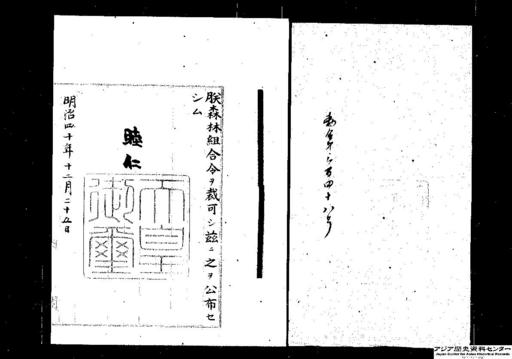 朕森林組合令ヲ裁可シ茲ニ之ヲ公布セ
シム
睦仁
天皇
御璽
明治四十年十二月二十五日
アジア歴史資料センター
Japan Center for Asian Historical Records